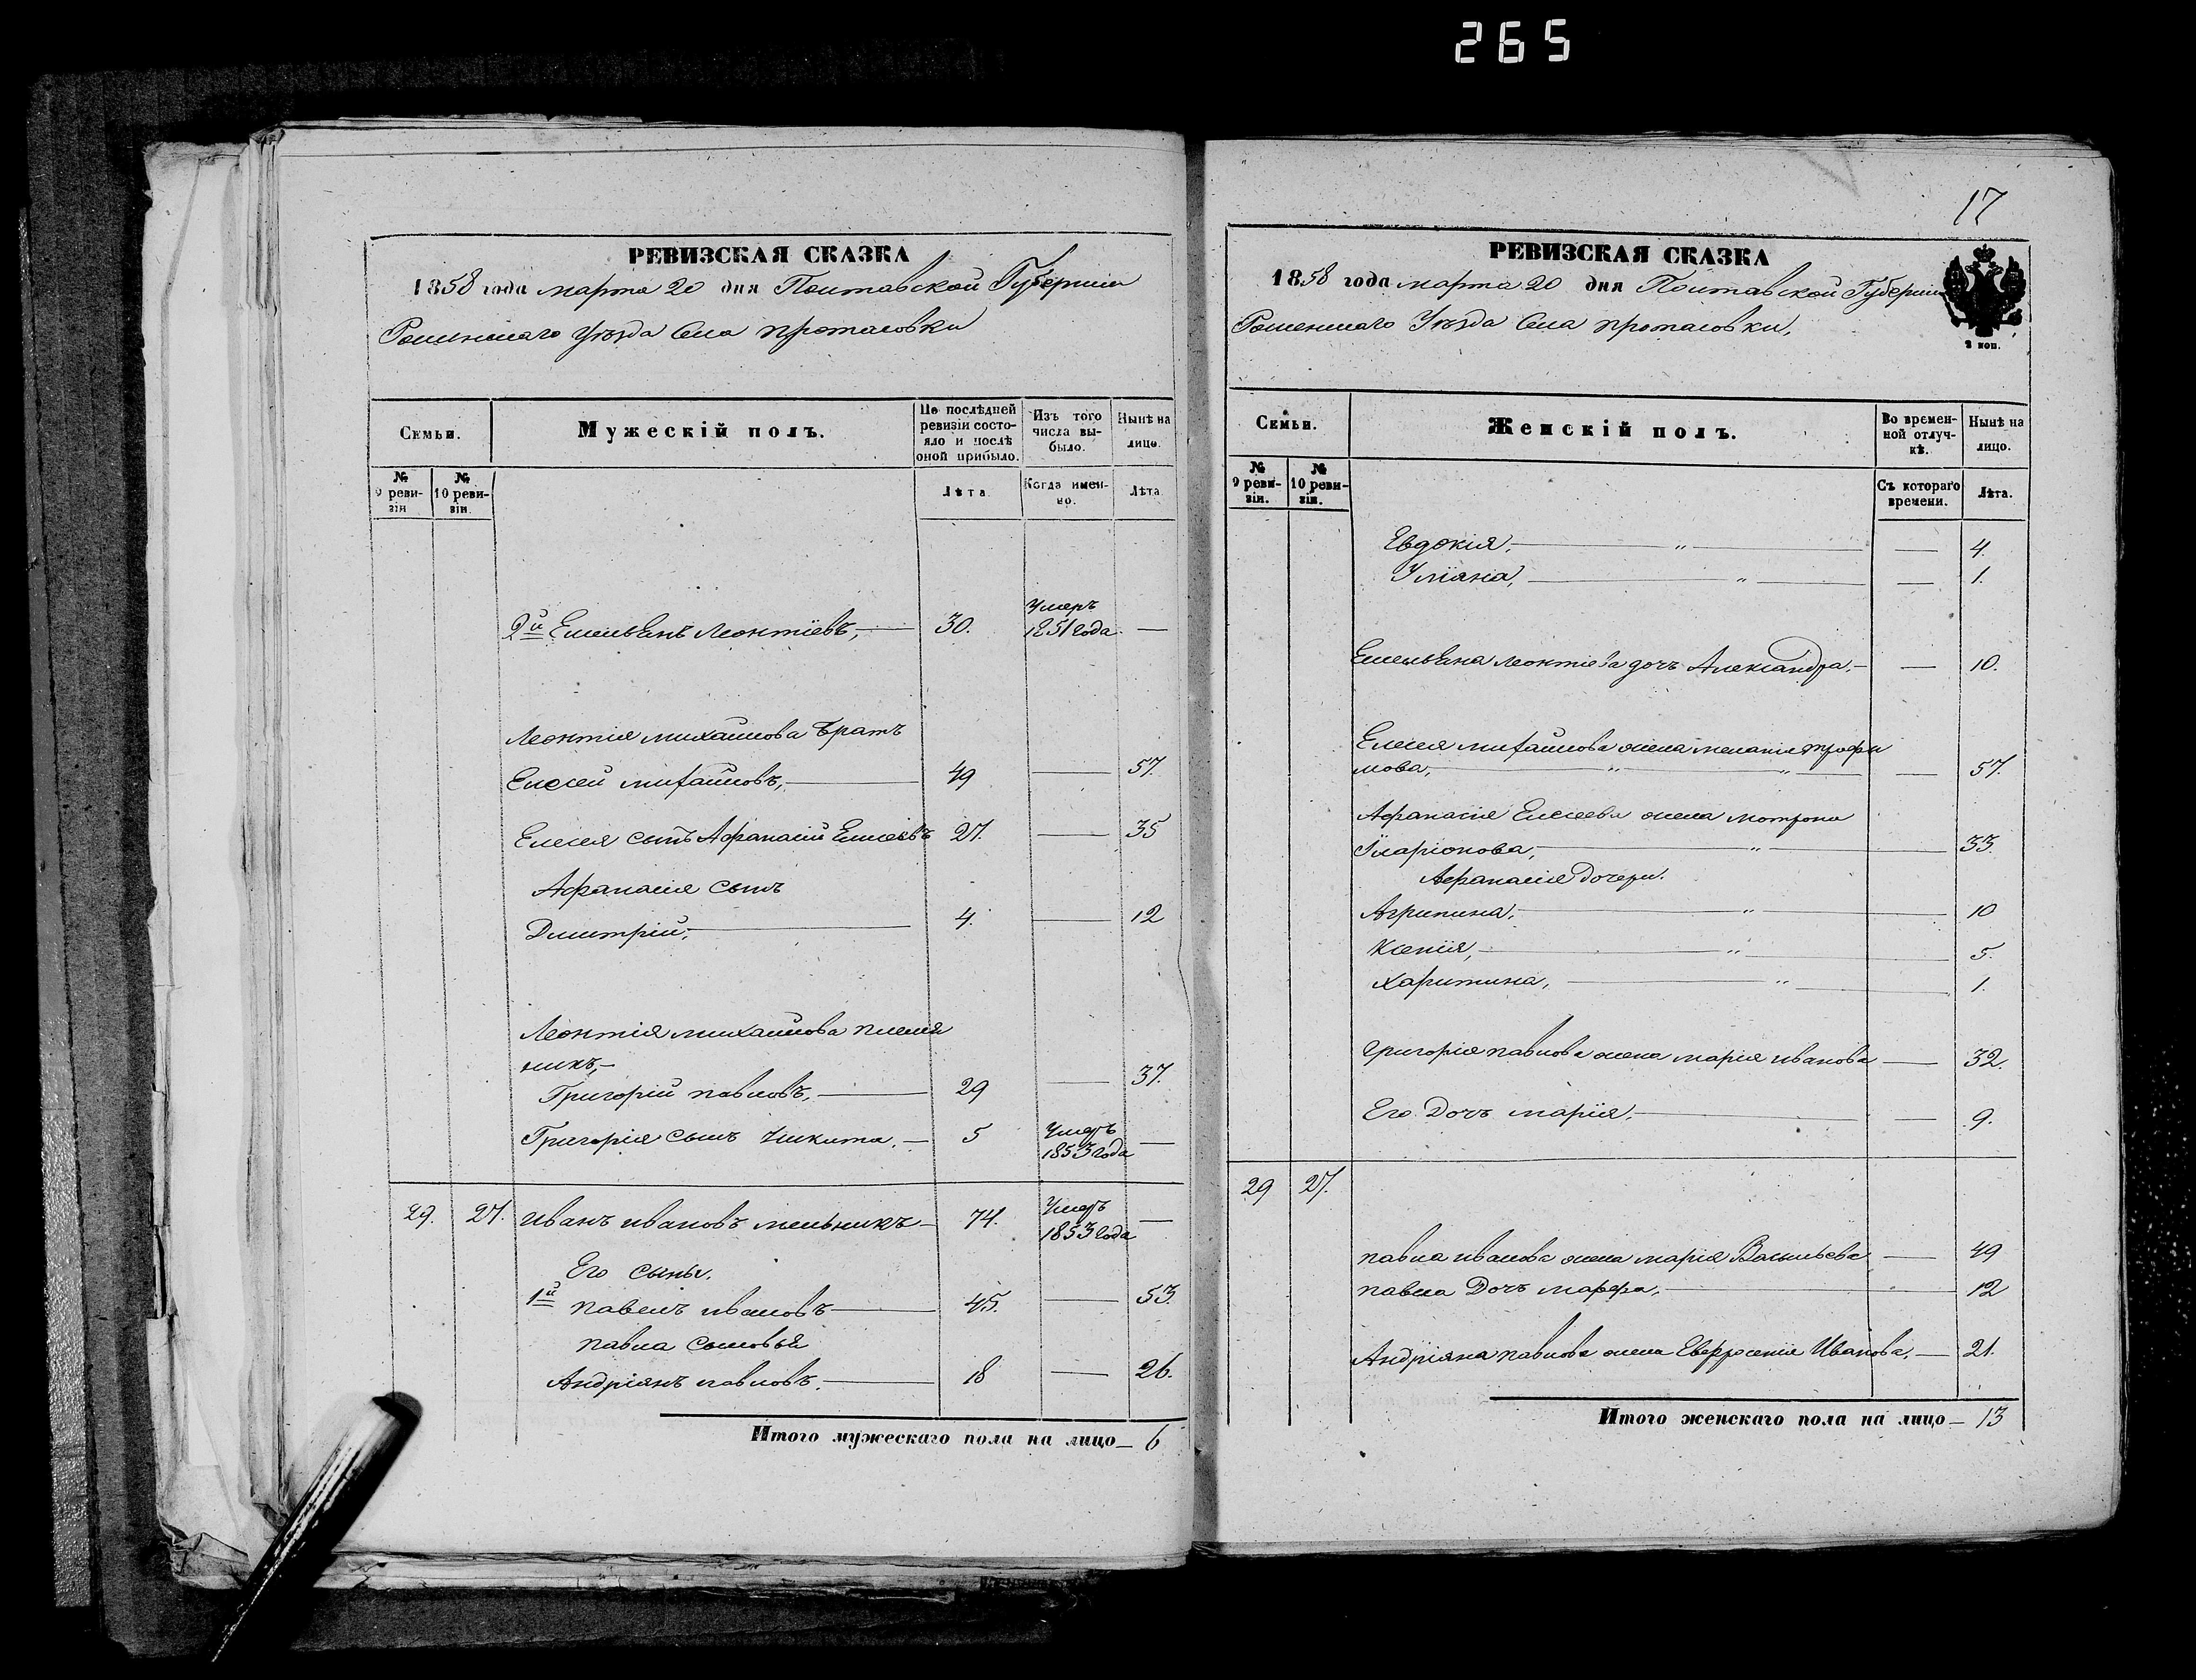 265
РЕВИЗСКАЯ СКАЗКА
1858 года марта 20 дня Полтавской Губерніи
Роменскаго Уѣзда Села протасовки
Семьи.
Мужескій полъ.
По послѣдней ревизіи состояло и послѣ оной прибыло.
Изъ того числа выбыло.
Нынѣ на лицо.
№ 9 ревизіи
№ 10 ревизіи.
Лѣта
Когда именно.
Лѣта
2й Емельянъ Леонтіевъ, — 30. Умеръ 1851 года —
Леонтія михайлова братъ
Елисей михайловъ, — 49 — 57.
Елисея сынъ Афанасій Елисѣевъ 27. — 35
Афанасія сынъ
Дмитрій, — 4. — 12
Леонтія михайлова племя
никъ, —
Григорій павловъ, — 29 — 37.
Григорія сынъ Никита, — 5 Умеръ 1853 года —
29. 27. Иванъ ивановъ мельникъ — 74. Умеръ 1853 года —
Его сыны.
1й павелъ ивановъ — 45. — 53.
павла сыновья
Андріянъ павловъ, — 18 — 26.
Итого мужескаго пола на лицо — 6
17
РЕВИЗСКАЯ СКАЗКА
1858 года марта 20 дня Полтавской Губерніи
Роменскаго Уѣзда Села протасовки,
2 коп.
Семьи.
Женскій полъ.
Во временной отлучкѣ.
Нынѣ на лицо.
№ 9 ревизіи.
№ 10 ревизіи.
Съ котораго времени.
Лѣта.
Евдокія, — " — — 4.
Уліяна, — " — — 1.
Емельяна леонтіева дочь Александра, — — 10.
Елисея михайлова жена меланія трофи
мова, — " — " — — 57.
Афанасія Елисеева жена мотрона
Іларіонова, — " — 33.
Афанасія дочери.
Агрипина, — " — 10
Ксенія, — " — 5.
Харитина, — " — 1.
Григорія павлова жена марія иванова — 32.
Его дочь марія, — — 9.
29 27.
павла иванова жена марія Васильева — 49
павла Дочъ марфа, — 12
Андріяна павлова жена Евфросенія Иванова, — 21.
Итого женскаго пола на лицо — 13